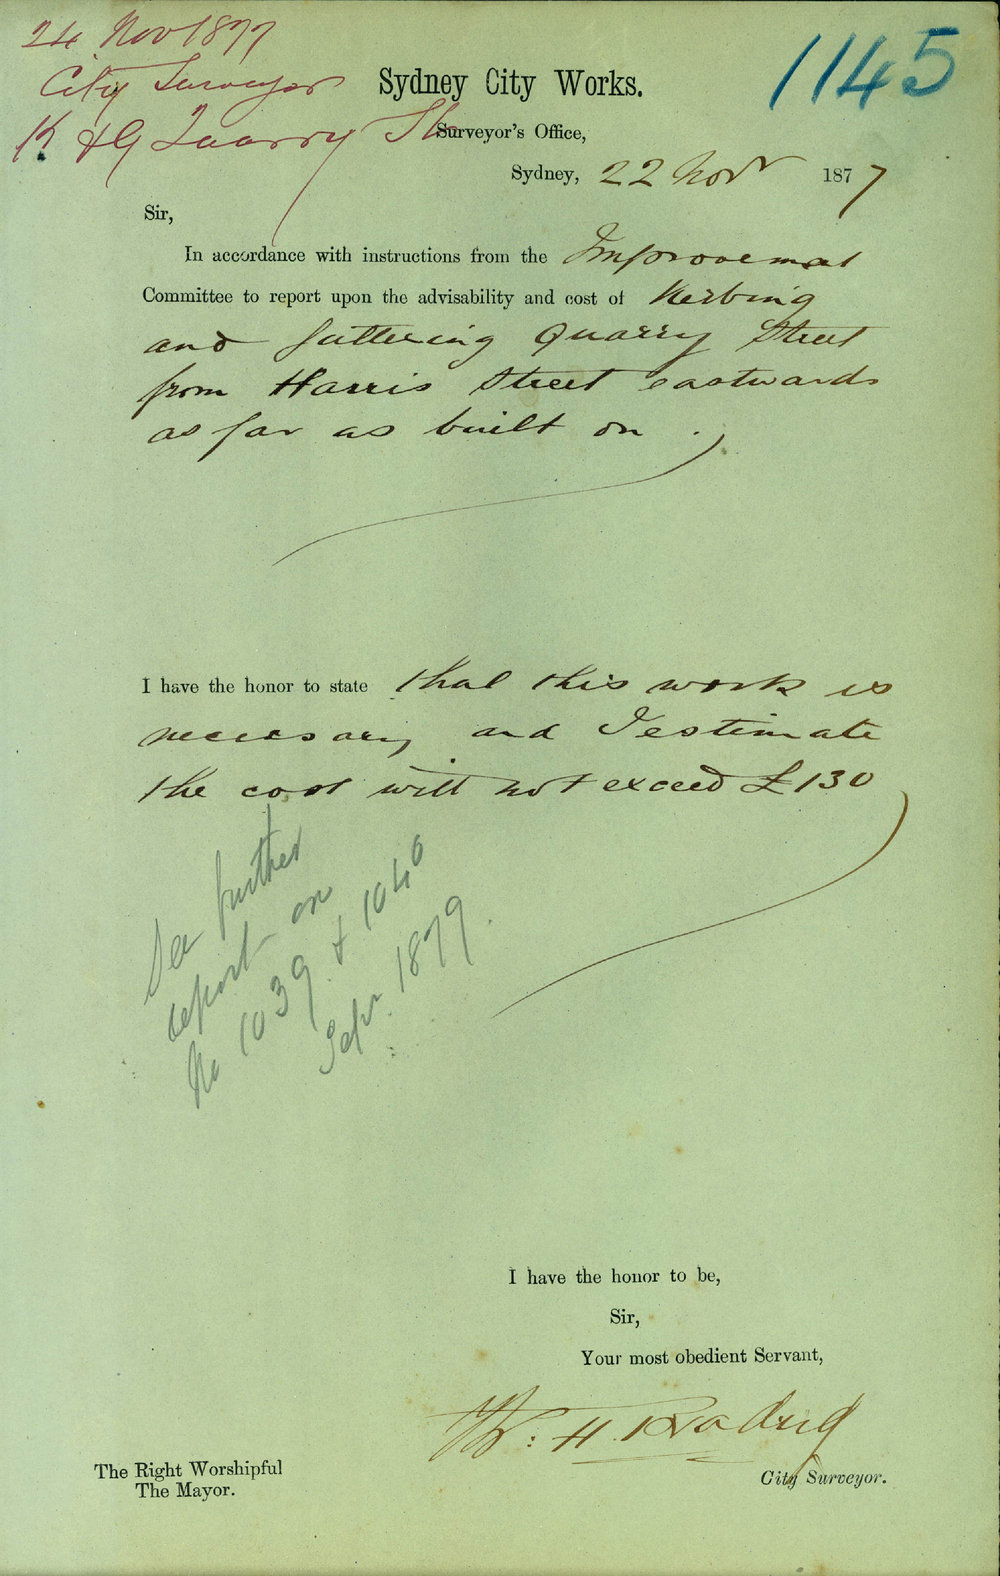 24 Nov 1877
City Surveyor
K & G Quarry St
1145
Sydney City Works.
Surveyor's Office,
Sydney, 22 Novr 1877
Sir,
In accordance with instructions from the Improvement
Committee to report upon the advisability and cost of Kerbing
and guttering Quarry Street
from Harris Street eastwards
as far as built on.
I have the honor to state that this work is
necessary and I estimate
the cost will not exceed £130
See further
report on
No 1039 & 1040
Sepr. 1879.
I have the honor to be,
Sir,
Your most obedient Servant,
City Surveyor.
The Right Worshipful
The Mayor.